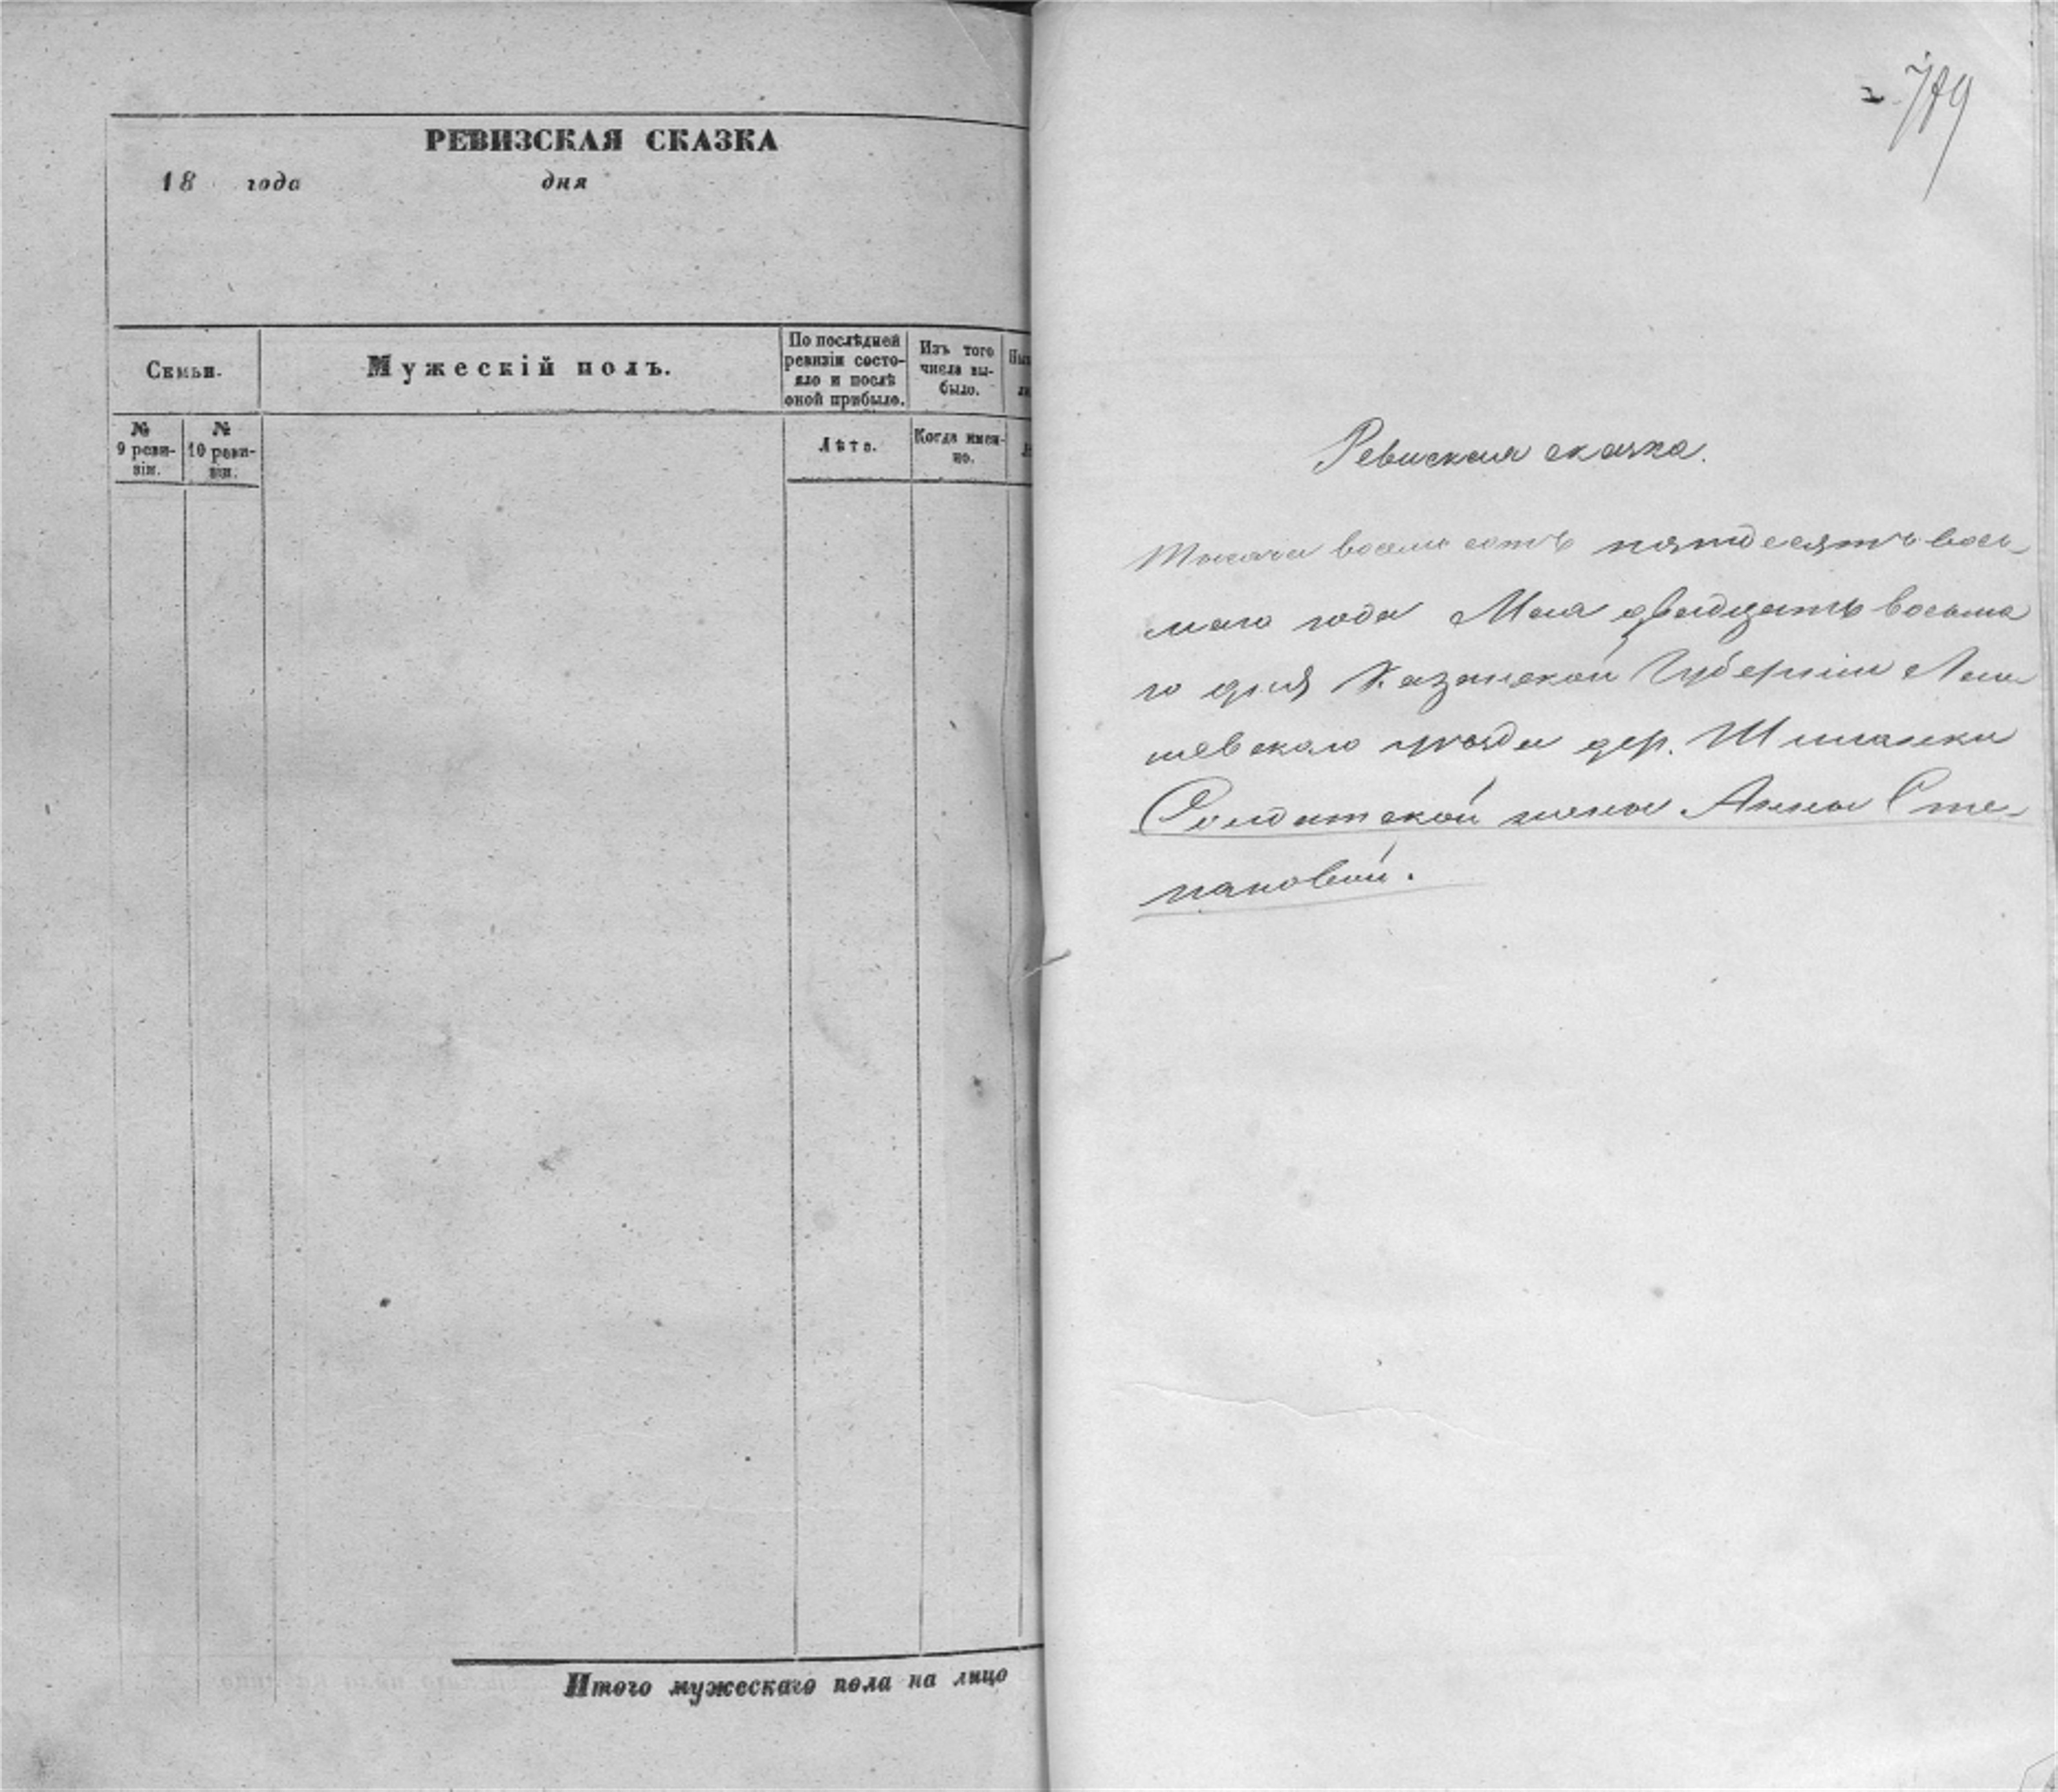 РЕВИЗСКАЯ СКАЗКА
18 года дня
Семьи.
Мужескій полъ.
По послѣдней
ревизіи состо-
яло и послѣ
оной прибыло.
Изъ того
числа вы-
было.
№
9 реви-
зіи.
№
10 реви-
зіи.
Лѣта.
Когда имен-
но.
Итого мужескаго пола на лицо
779
Ревиская сказка.
Тысяча восемь сотъ пятидесятъ вось-
маго года Мая двадцать восьма
го дня Казанской Губерніи Лаи
шевскаго уѣзда дер. Шигалеки
Солдатской жены Анны Сте-
пановой.